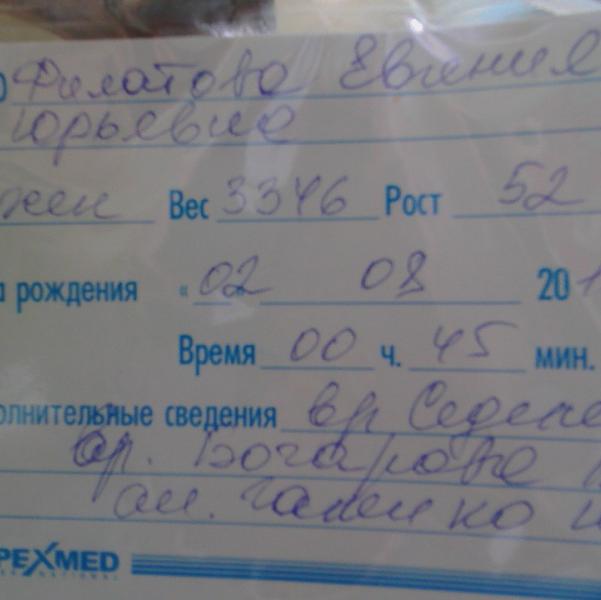 О Филатова Евгения
Юрьевна
жен Вес 3346 Рост 52
а рождения «02 » 08 201
Время 00 ч. 45 мин.
олнительные сведения вр Седене
вр. Бочарова
ан. Галенко
PEXMED